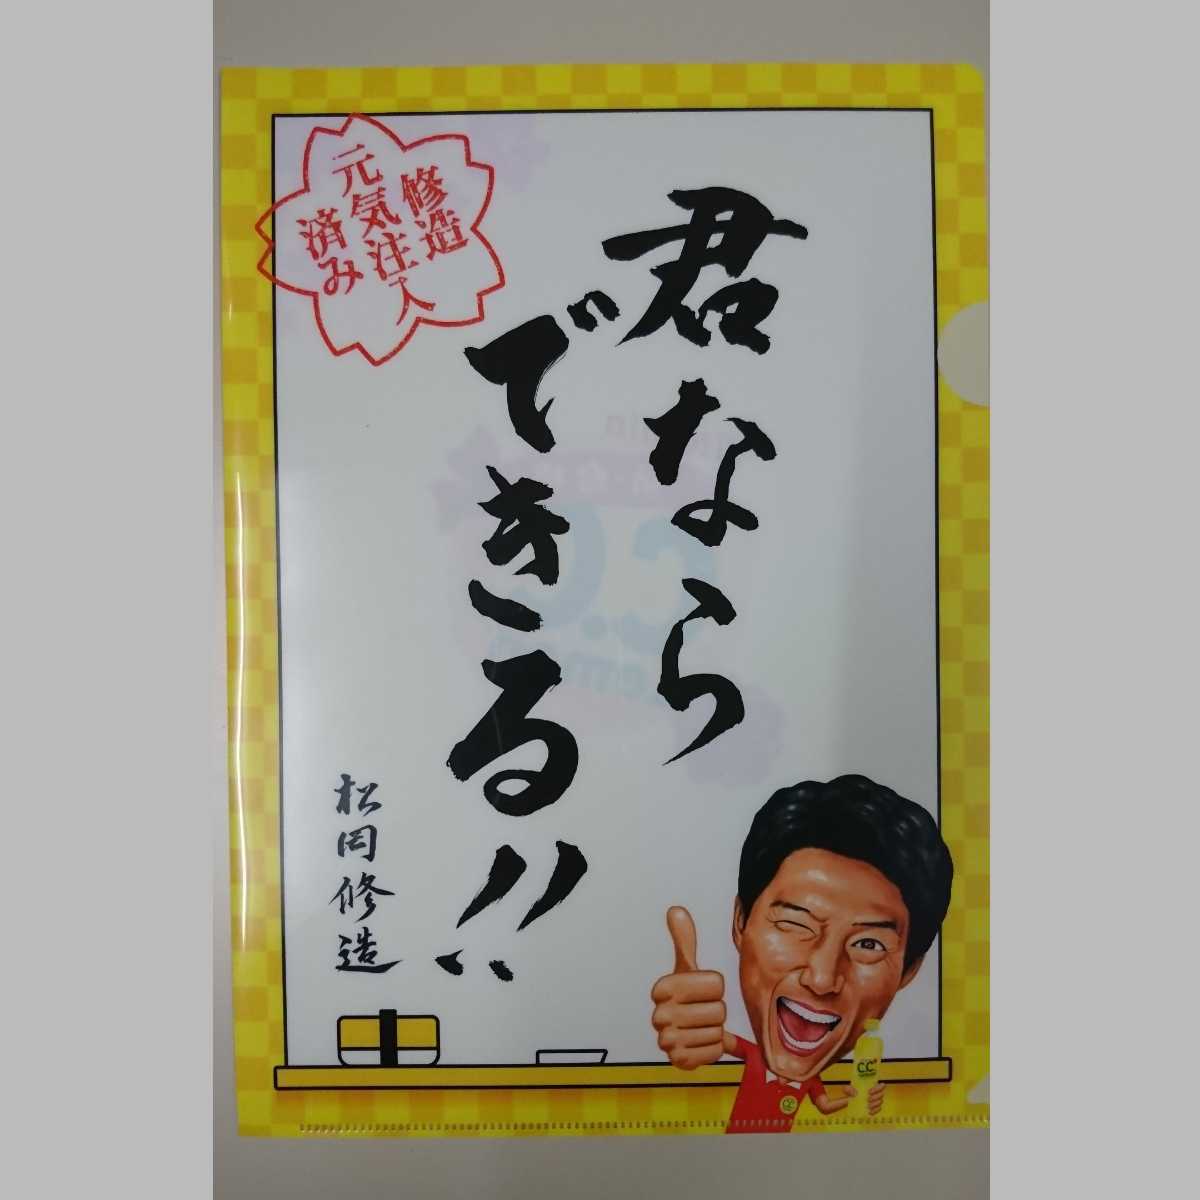 君なら
できる!!
松岡修造
修造
元気注入
済み
C.C